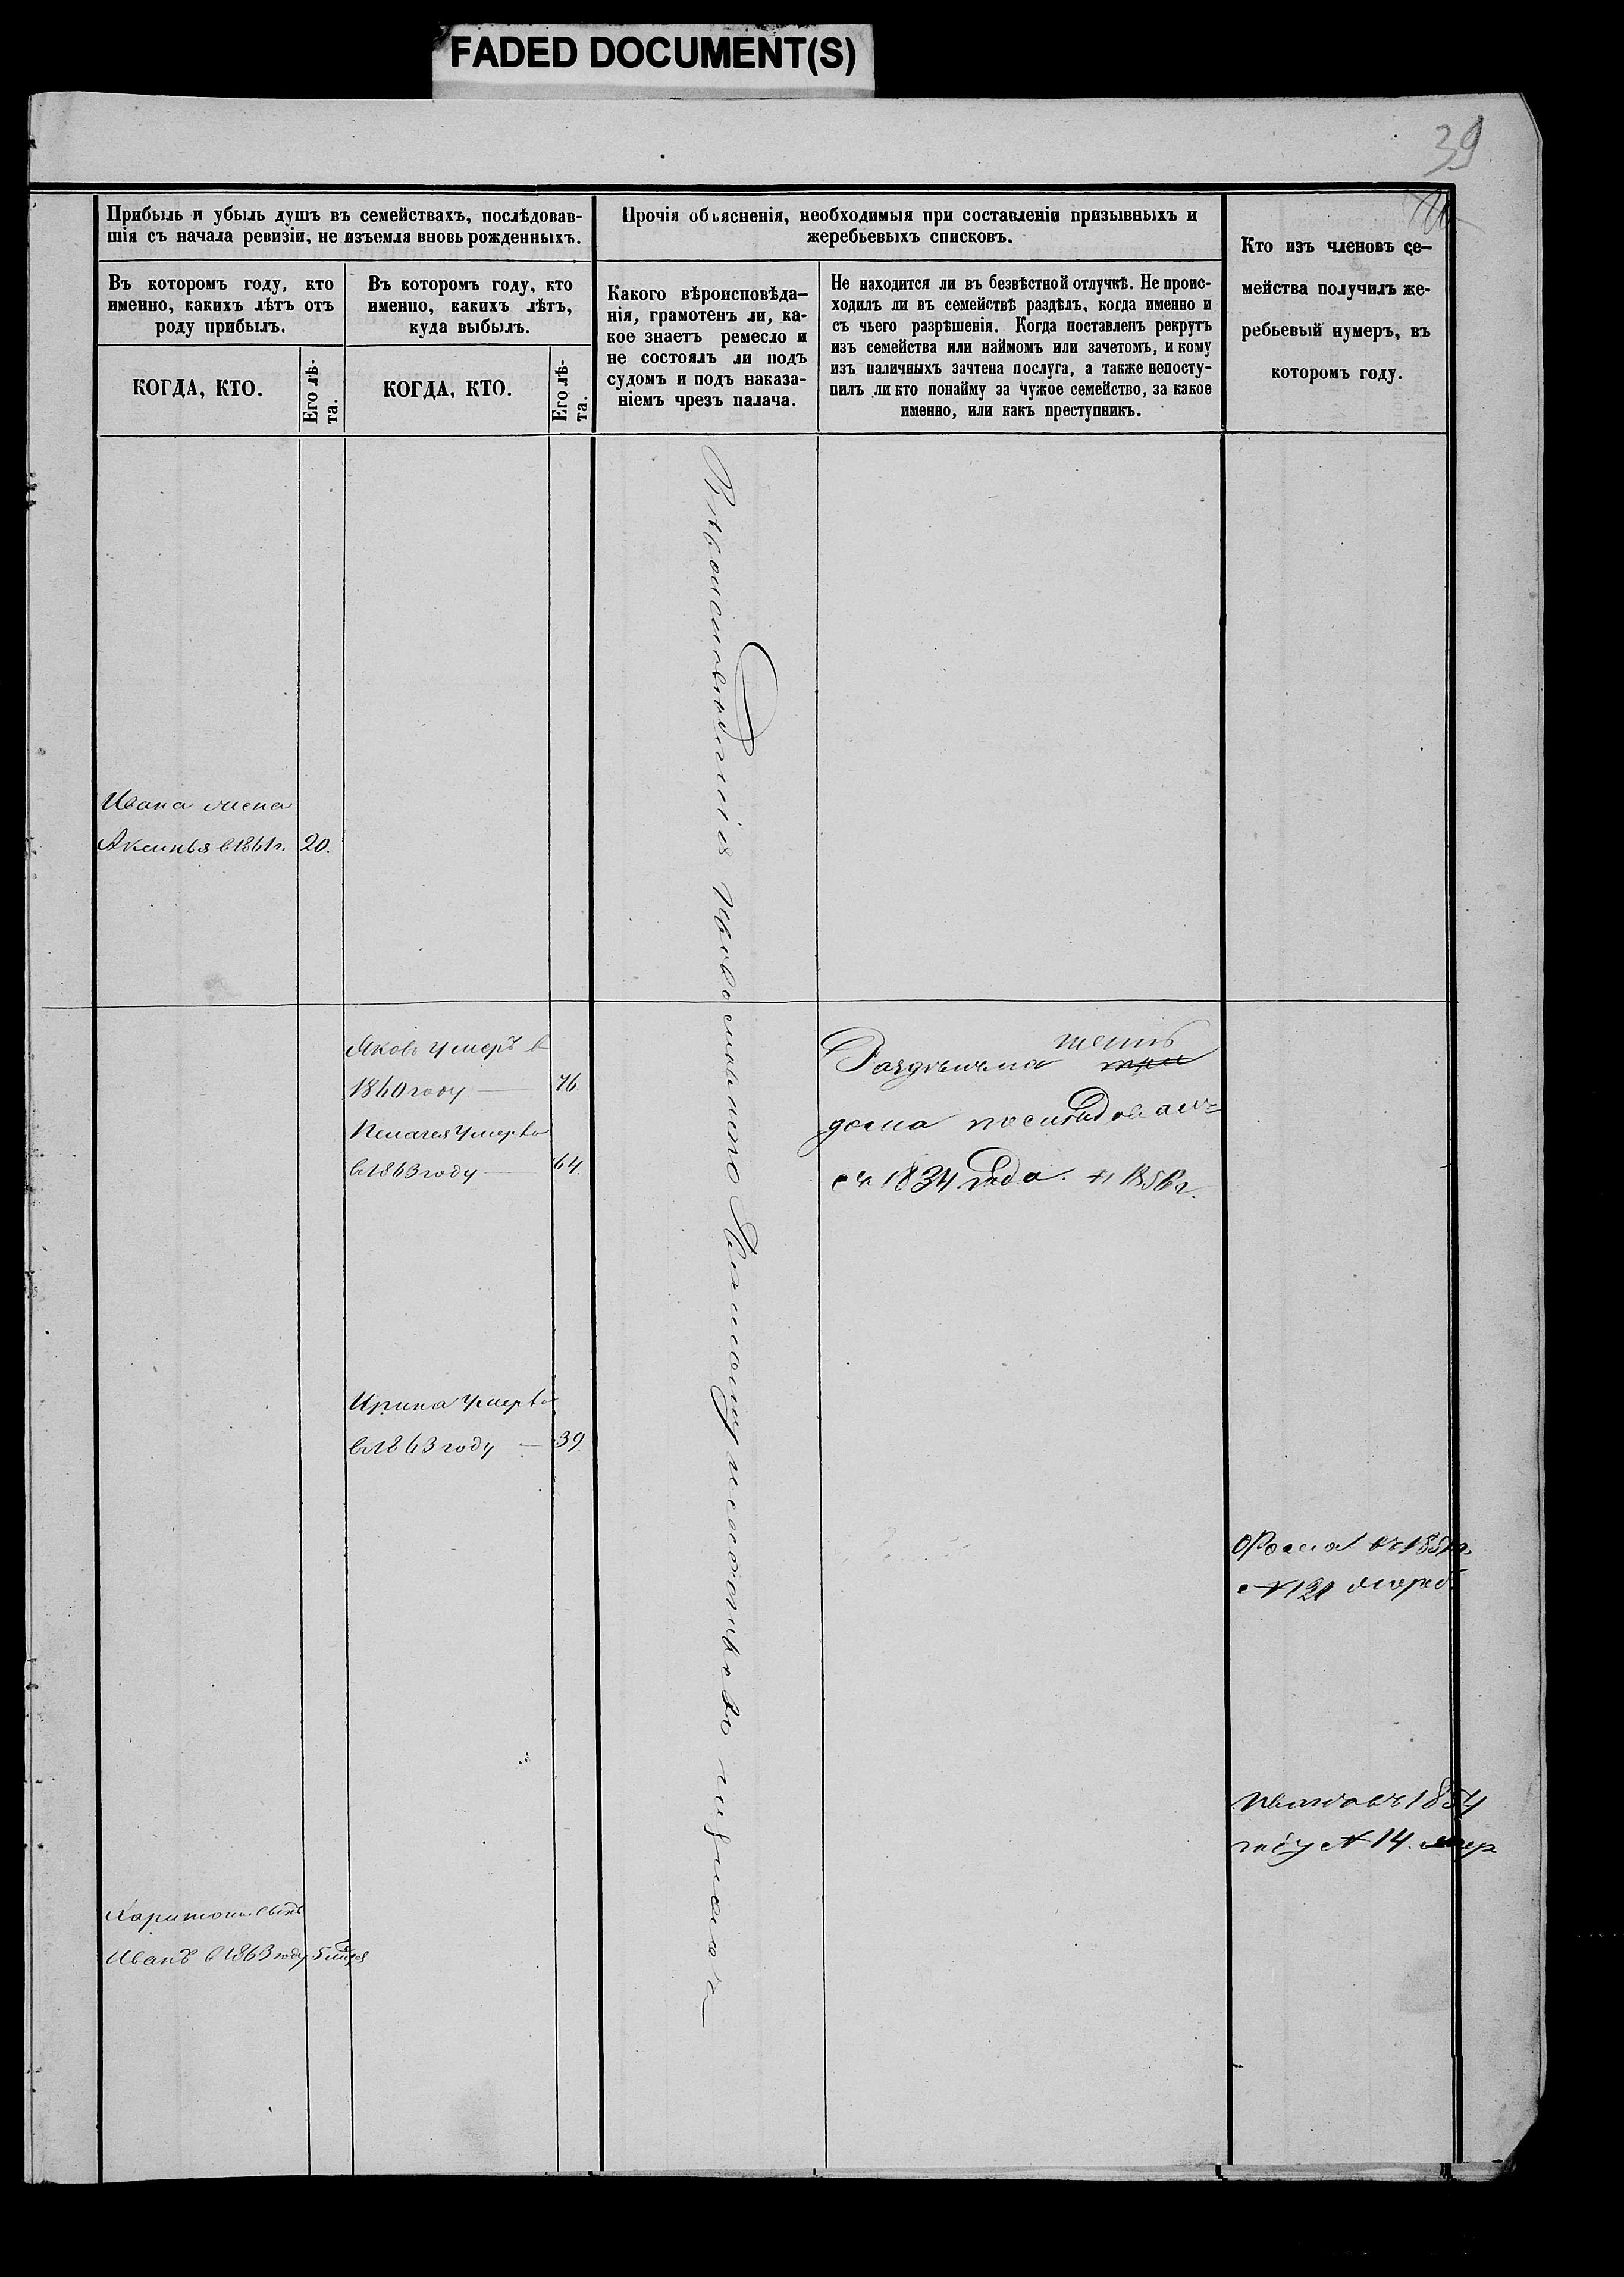 FADED DOCUMENT(S)
39
Прибыль и убыль душъ въ семействахъ, послѣдовав-
шія съ начала ревизіи, не изъемля вновь рожденныхъ.
Въ которомъ году, кто
именно, какихъ лѣтъ отъ
роду прибылъ.
КОГДА, КТО.
Его лѣ-
та.
Въ которомъ году, кто
именно, какихъ лѣтъ,
куда выбылъ.
КОГДА, КТО.
Его лѣ-
та.
Прочія объясненія, необходимыя при составленіи призывныхъ и
жеребьевыхъ списковъ.
Какого вѣроисповѣда-
нія, грамотенъ ли, ка-
кое знаетъ ремесло и
не состоялъ ли подъ
судомъ и подъ наказа-
ніемъ чрезъ палача.
Не находится ли въ безвѣстной отлучкѣ. Не проис-
ходилъ ли въ семействѣ раздѣлъ, когда именно и
съ чьего разрѣшенія. Когда поставленъ рекрутъ
изъ семейства или наймомъ или зачетомъ, и кому
изъ наличныхъ зачтена послуга, а также непосту-
пилъ ли кто понайму за чужое семейство, за какое
именно, или какъ преступникъ.
Кто изъ членовъ се-
мейства получилъ же-
ребьевый нумеръ, въ
которомъ году.
Ивана жена
Аксинья в 1861 г. 20.
Яковъ умеръ в
1860 году — 76
Пелагея умерла
в 1863 году — 64.
Ирина умерла
в 1863 году — 39
Харитона сынъ
Иванъ в 1863 году 5
Вѣроисповеданія православнаго
шесть
Раздѣлъ на три
дома послѣдовалъ
съ 1834 года. и 1856 г.
Фома въ
№ 121 жереб.
въ 1854
году № 14. жер